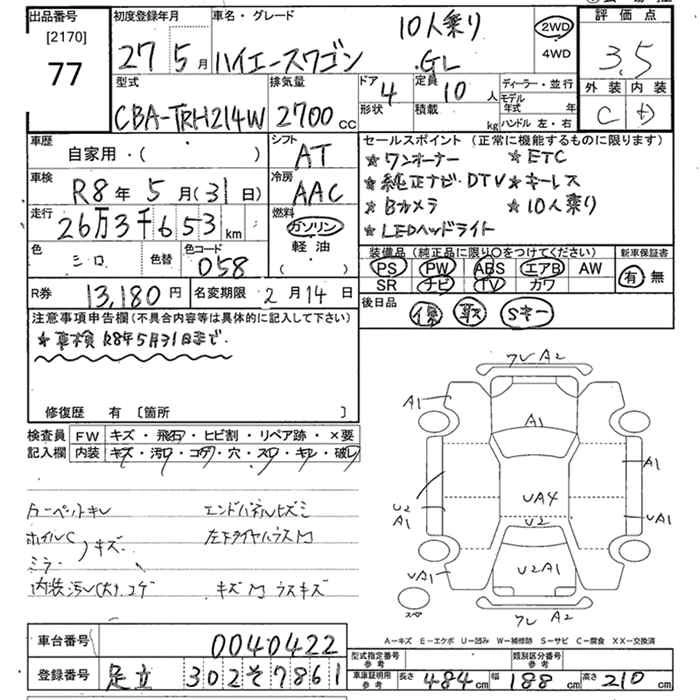 出品番号
[2170]
77
初度登録年月
27 5月
車名・グレード
10人乗り
ハイエースワゴン GL
2WD
4WD
評価点
3.5
型式
CBA-TRH214W
排気量
2700 CC
ドア 4
形状
定員 10 人
積載 kg
ディーラー・並行
モデル年式 年
ハンドル 左・右
外装 内装
C D
車歴
自家用・( )
シフト
AT
車検
R8年 5月(31日)
冷房
AAC
走行
26万3千653 km
燃料
ガソリン
軽油
( )
色
シロ
色替
色コード
058
R券
13,180円
名変期限 2月14日
セールスポイント (正常に機能するものに限ります)
★ワンオーナー ★ETC
★純正ナビ・DTV ★キーレス
★Bカメラ ★10人乗り
★LEDヘッドライト
装備品 (純正品に限り○をつけてください)
PS PW ABS エアB AW
SR ナビ TV カワ
新車保証書
有 無
後日品
保 取 Sキー
注意事項申告欄(不具合内容等は具体的に記入して下さい)
★車検R8年5月31日まで.
修復歴 有 [箇所 ]
検査員記入欄
FW キズ・飛石・ヒビ割・リペア跡・×要
内装 キズ・汚レ・コゲ・穴・スレ・キレ・破レ
カーペットキレ エンドパネルヒズミ
ホイルC
ミラー )キズ.
内装汚レ(大).コゲ キズM ラスキズ
フレA2
A1
A1
A1
U2
A1
UA4
U2
UA1
UA1
U2A1
スペア
フレA2
A−キズ E−エクボ U−凹み W−補修跡 S−サビ C−腐食 XX−交換済
車台番号
0040422
登録番号
足立 302 そ 7861
型式指定番号 参考
類別区分番号 参考
車庫証明用 参考
長さ 484cm 幅 188cm 高さ 210cm